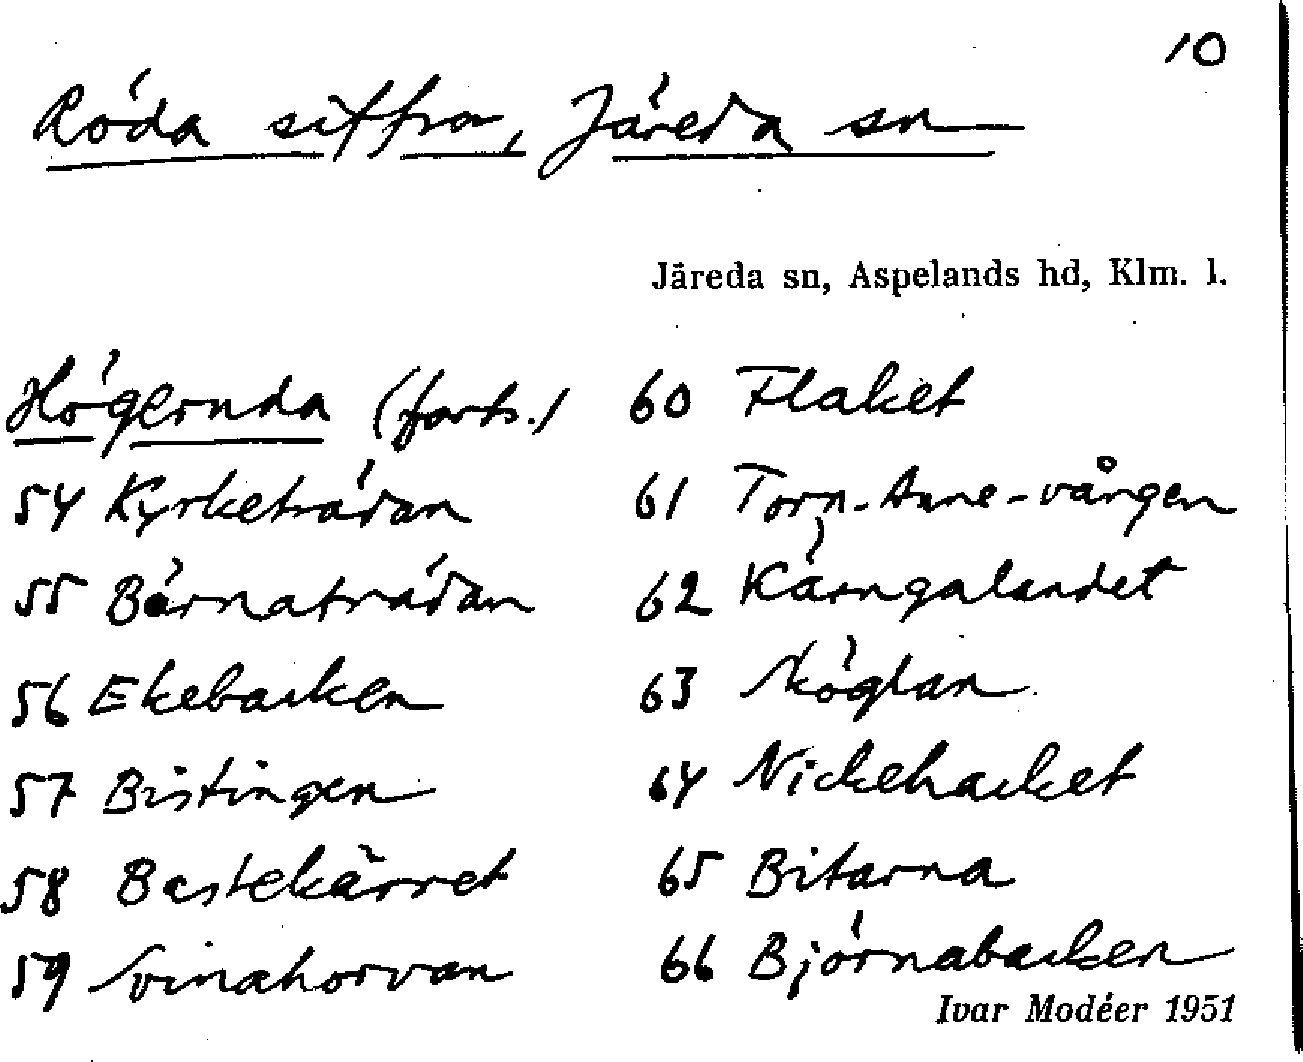 10
Röda siffror, Järeda sn
Järeda sn, Aspelands hd, Klm. l.
Högeruda (forts.)
54 Kyrketrädan
55 Börnaträdan
56 Ekebacken
57 Bistingen
58 Bastekärret
59 Svinahorvan
60 Flaket
61 Torn-Anne-vången
62 Kärngalandet
63 Sköglan
64 Nickehacket
65 Bitarna
66 Björnabacken
Ivar Modéer 1951